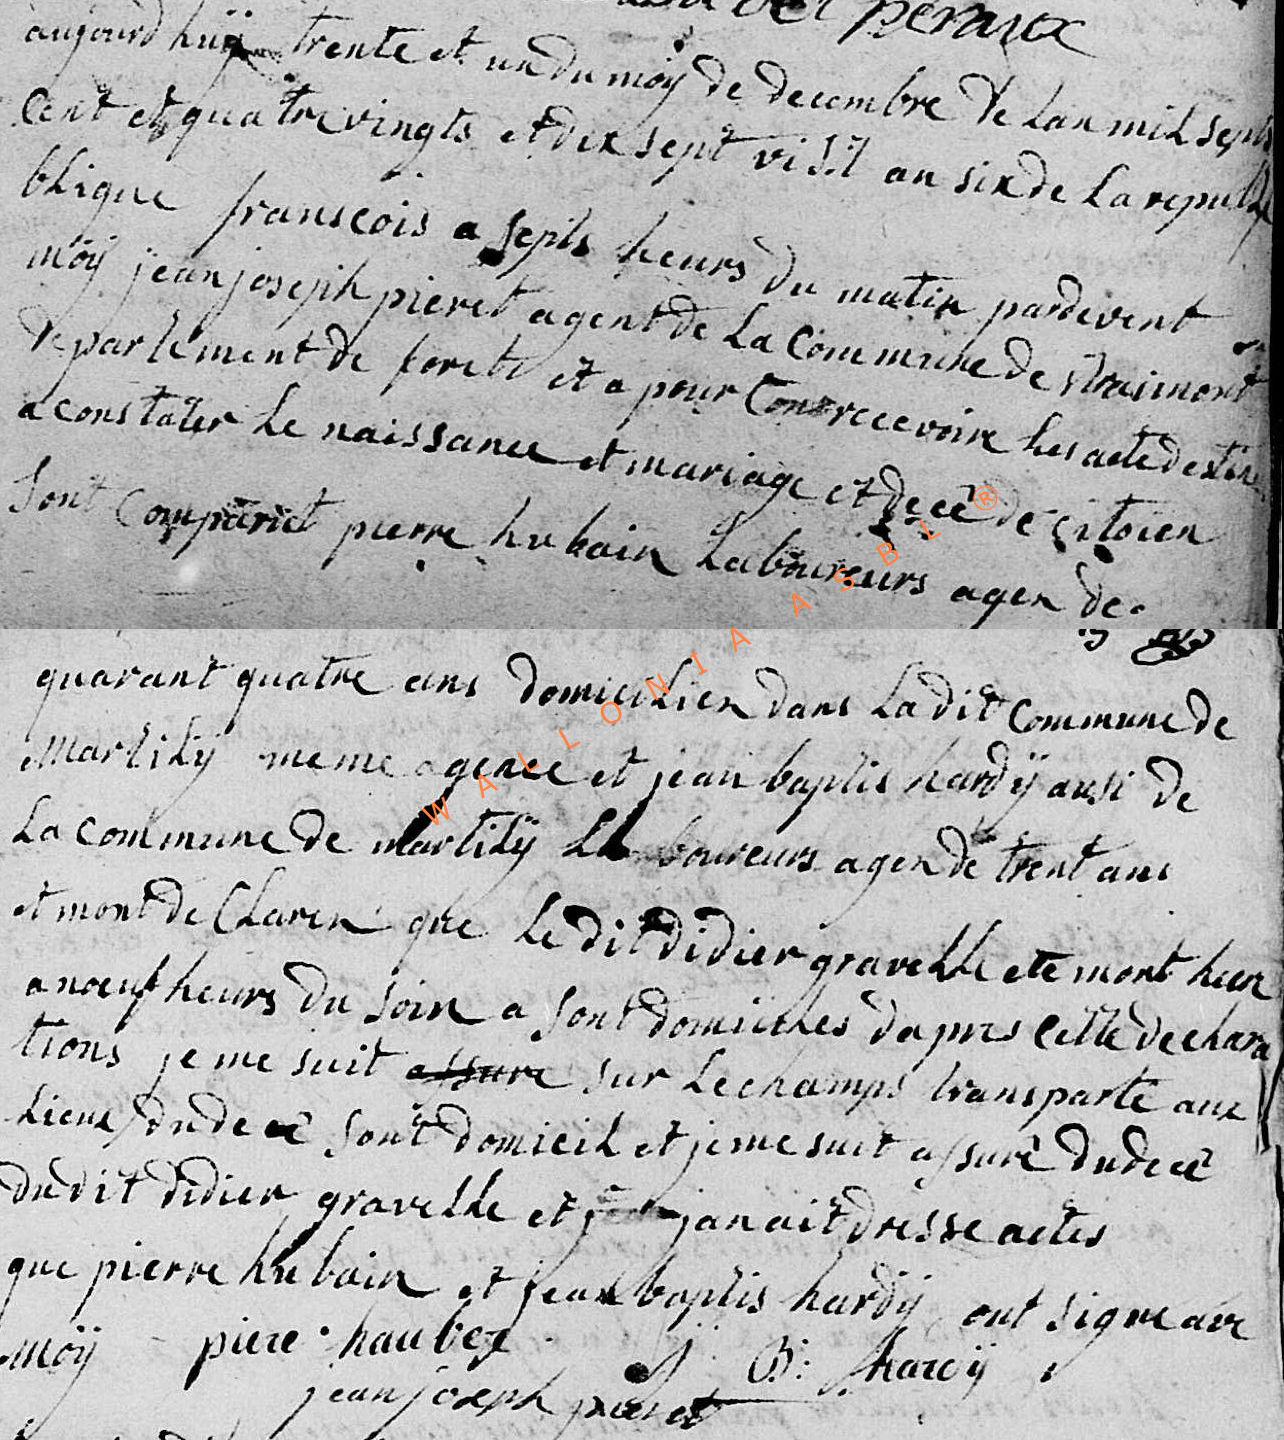 peraux
aujourd huÿ trente et un du moÿ de decembre de Lan mil septs
cent et quatre vingts et dix sept vi S.l an six de La repu
blique franscois a septs heurs du matin pardevent
moÿ jean joseph pieret agent de La Commune de straimont
departement de forets et a pour recevoire Les acte destine
a constater Le naissance et mariage et decé de citoien
Sont comparut pierre hubain Laboureurs agen de
quarant quatre ans domicilien dans Ladit Commune de
Martilÿ meme agence et jean baptis hardÿ ausi de
La commune de Martilÿ La boureurs agen de trent ans
et mont de Claren que Le dit didier gravelle ete mort hier
a noeuf heurs du soir a sont domiciles dapres cette declara
tions je me suit assure sur Lechamps transparte aux
Lieux du decé sont domicil et je me suit assuré du decé
dudit didier gravelle et janait dresse actes
que pierre hubain et jean baptis hardÿ ont signe avec
Moÿ piere haubex J B: hardÿ
jean joseph pieret
WALLONIA ASBL ®